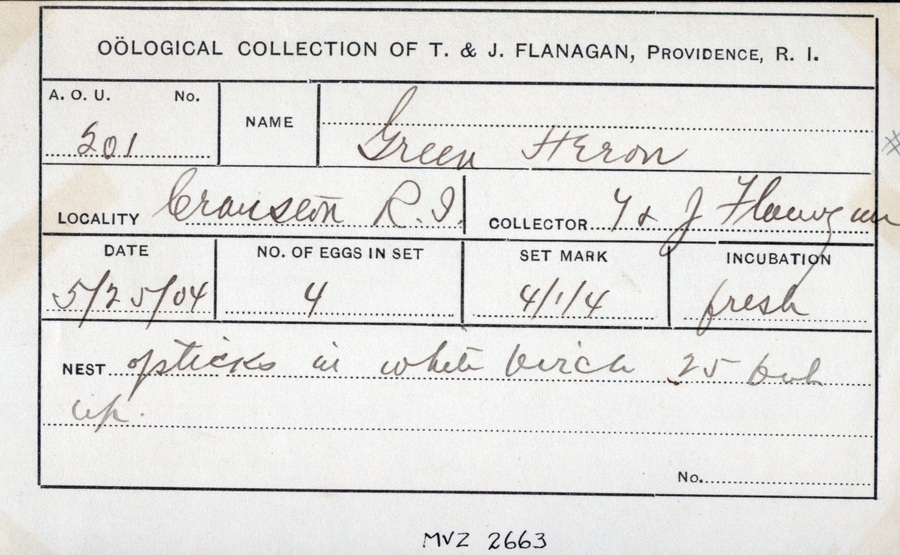 OÖLOGICAL COLLECTION OF T. & J. FLANAGAN, PROVIDENCE, R. I.
A. O. U. No.
201
NAME
Green Heron
LOCALITY Cranston R.I.
COLLECTOR T & J Flanagan
DATE
5/25/04
NO. OF EGGS IN SET
4
SET MARK
4/1/4
INCUBATION
fresh
NEST of sticks in white birch 25 feet
up.
No.
#
MVZ 2663